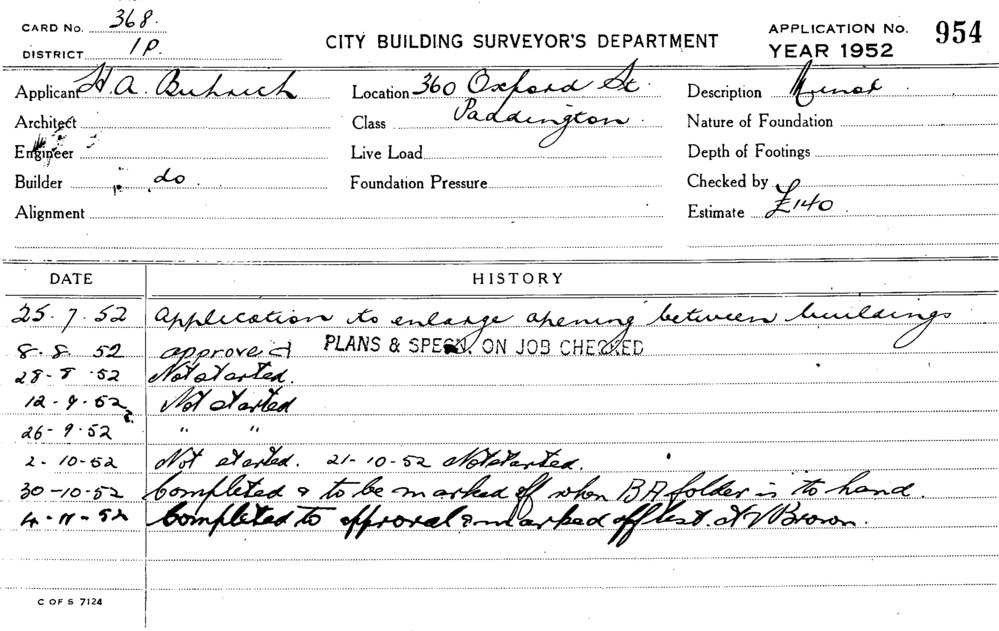 CARD No. 368.
DISTRICT 1P.
CITY BUILDING SURVEYOR'S DEPARTMENT
APPLICATION No. 954
YEAR 1952
Applicant H A. Buhrich
Location 360 Oxford St.
Description Minor
Architect
Class Paddington
Nature of Foundation
Engineer
Live Load
Depth of Footings
Builder do
Foundation Pressure
Checked by
Alignment
Estimate £140
DATE HISTORY
25. 7. 52 Application to enlarge opening between buildings
8. 8. 52 approved PLANS & SPECN. ON JOB CHECKED
28-8-52 Not started.
12-9-52 Not started
26-9-52 " "
2-10-52 Not started. 21-10-52 Not started.
30-10-52 Completed & to be marked off when BA folder is to hand.
4-11-52 Completed to approval & marked off Brown.
C OF S 7124